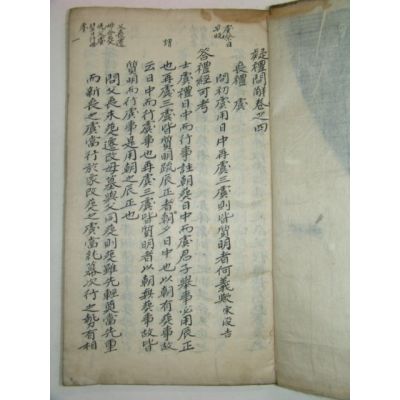 疑禮問解卷之四
喪禮 虞
問初虞用日中再虞三虞則皆質明者何義歟 宋浚吉
答禮經可考
士虞禮日中而行事註朝葬日中而虞君子擧事必用辰正
也再虞三虞皆質明疏辰正者朝夕日中也以朝有葬事故
云日中而行虞事也再虞三虞皆質明者以朝無葬事故皆
質明而行虞事是用朝之辰正也
問父喪未葬遷改母墓與父同葬則葬雖先輕奠當先重
而新喪之虞當行於家改葬之虞當於墓次行之勢有相